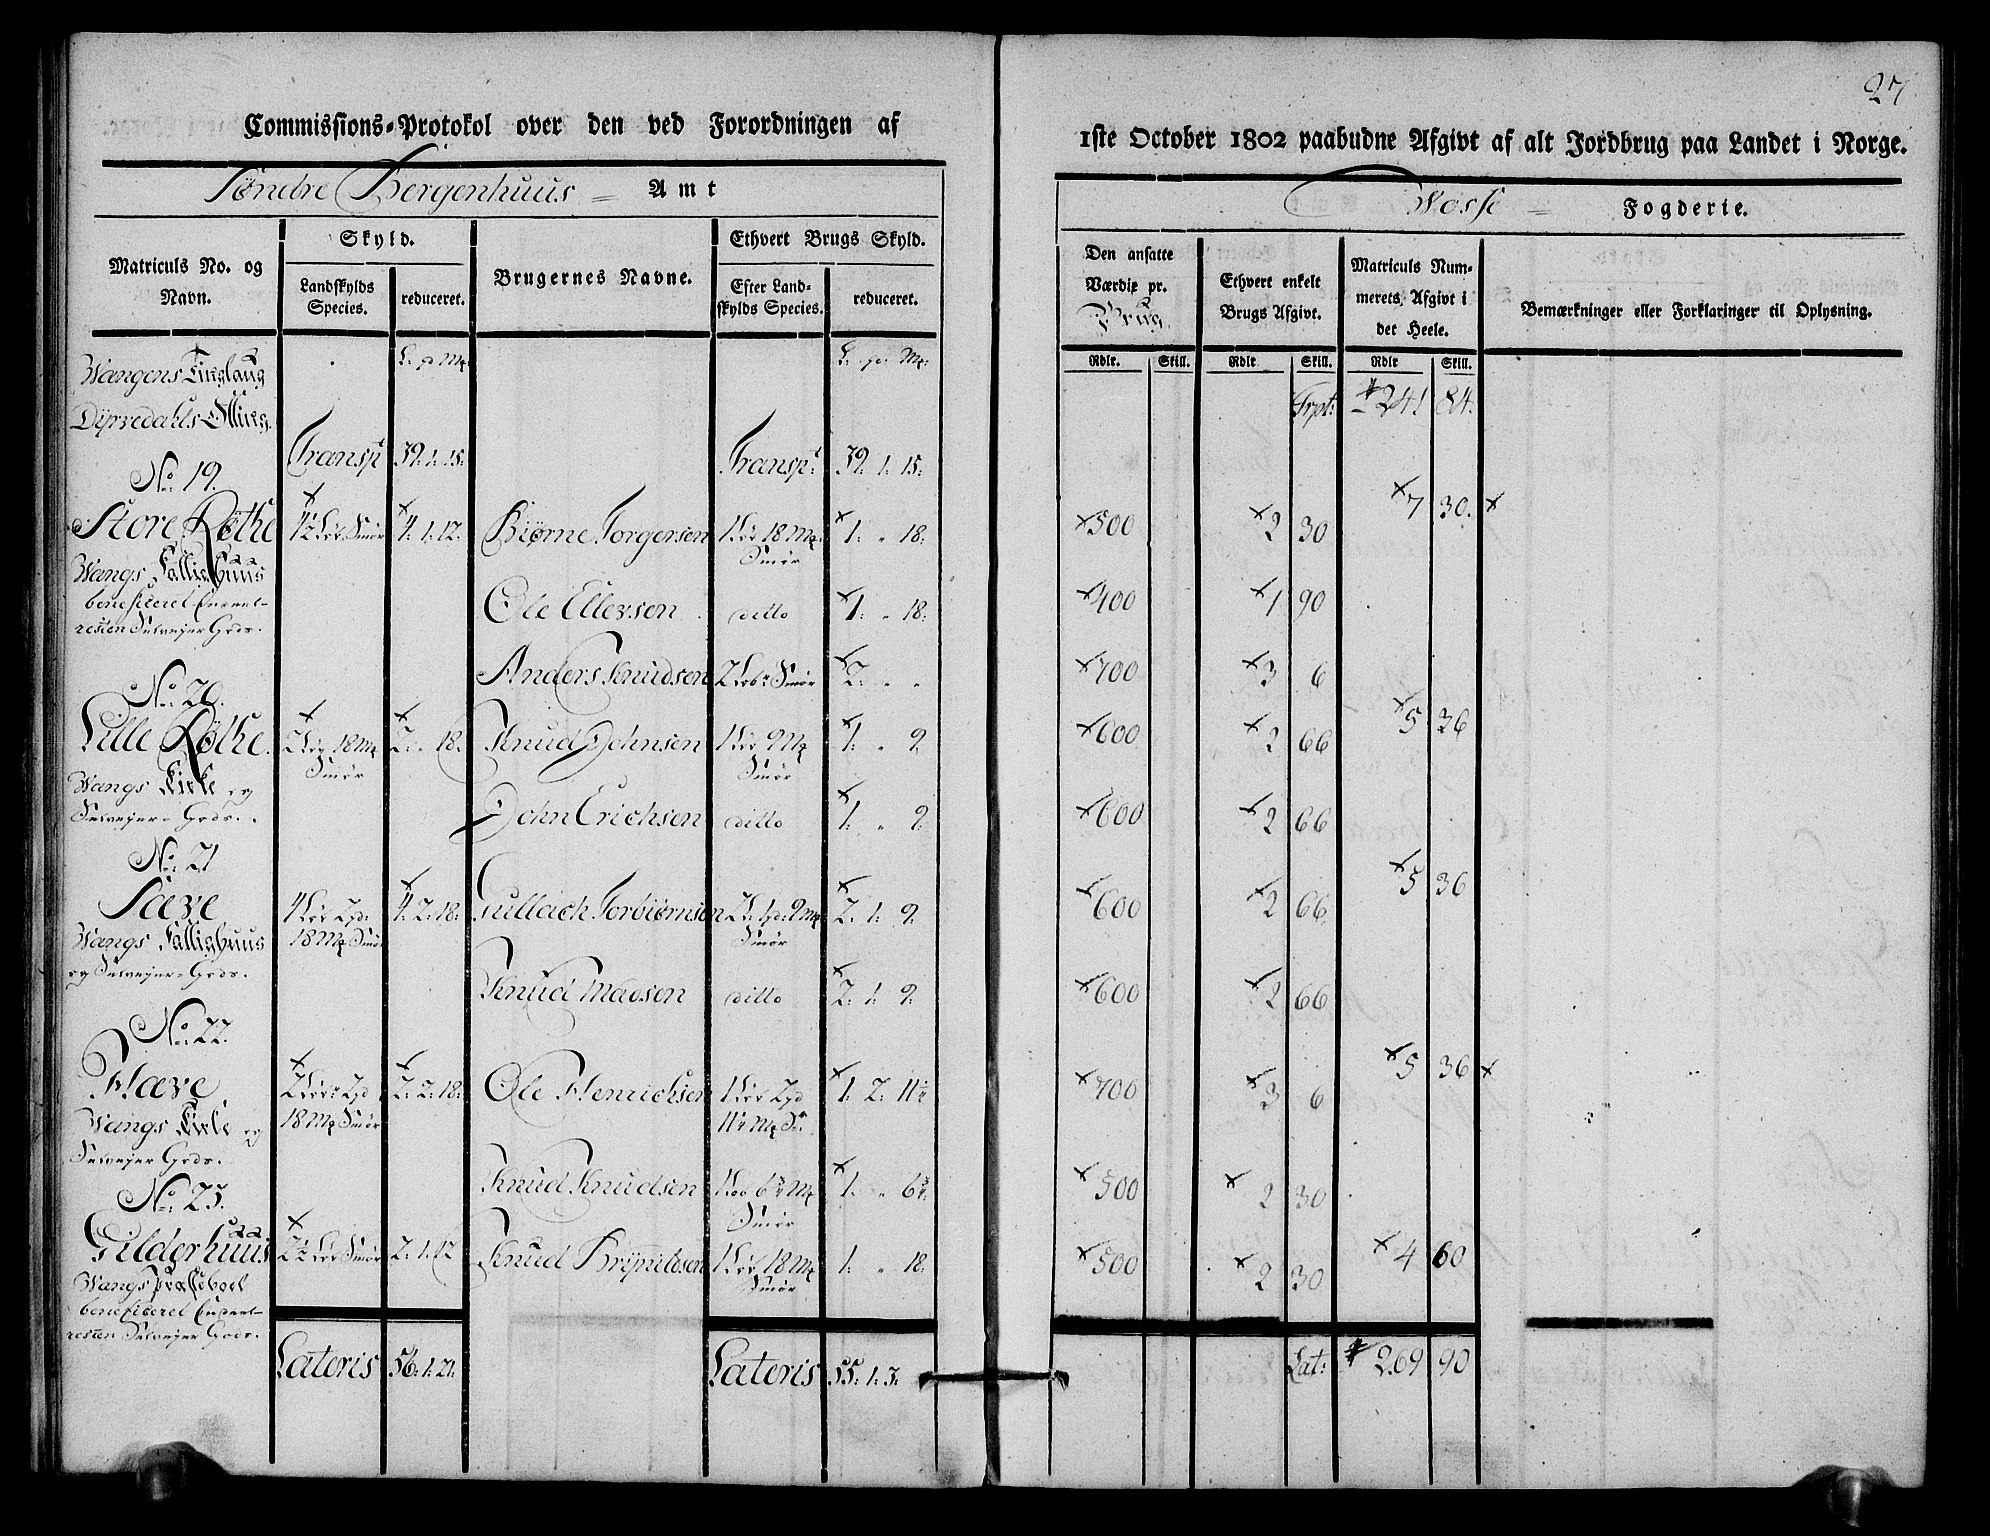 27
Commissions-Protokol over den ved Forordningen af
1ste October 1802 paabudne Afgivt af alt Jordbrug paa Landet i Norge.
Søndre Bergenhuus = Amt
Wosse = Fogderie.
Matriculs No. og Navn.
Skyld.
Landskylds Species.
reduceret.
Brugernes Navne.
Ethvert Brugs Skyld.
Efter Landskylds Species.
reduceret.
Den ansatte Værdie pr. Brug
Ethvert enkelt Brugs Afgivt.
Matriculs Nummerets, Afgivt i det Heele.
Bemærkninger eller Forklaringer til Oplysning.
Rdlr. Skill. Rdlr Skill. Rdlr Skill.
Wangens Tinglaug
Dyrvedahls Otting.
Trpt: 241 84.
Transpt 39. 1. 15. Transpt: 39. 1. 15.
No: 19.
Store Røthe 4½ Løb Smør 4. 1. 12. Biørne Torgersen 1 Løb 18 Mg Smør 1: " 18: 500 2 30 7 30.
Wangs Fattighuus
beneficeret
resten Selvejer Gods.
Ole Ellevsen ditto 1: " 18: 400 1 90
Anders Knudsen 2 Løb: Smør 2. " " 700 3 6
No: 20.
Lille Røthe. 2 Løb 18 Mg Smør 2. " 18. Knud Johnsen 1 Løb 9 Mg Smør 1: " 9. 600 2 66 5 36
Wangs Kirke og
Selvejer-Gods.
John Erichsen ditto 1: " 9: 600 2 66
No: 21
Sæve 4 Løb 2 pd: 18 Mg Smør 4. 2. 18. Gullach Torbiørnsen 2 L: 1 p: 9 Mg Smør 2. 1. 9. 600 2 66 5 36
Wangs Fattighuus
og Selvejer-Gods.
Knud Madsen ditto 2: 1. 9: 600 2 66
No: 22.
Hæve 2 Løb 2 pd 18 Mg Smør 2: 2: 18. Ole Henrichsen 1 Løb 2 pd 11¼ Mg Sm 1: 2. 11¼ 700 3 6 5 36
Wangs Kirke og
Selvejer Gods.
Knud Knudsen 1 Løb 6¾ Mg Smør 1. " 6¾. 500 2 30
No: 23.
Gilderhuus 2½ Løb Smør 2. 1. 12 Knud Brynildsen 1 Løb 18 Mg Smør 1. " 18. 500 2 30 4 60
Wangs Præstebord
beneficeret
resten Selvejer Gods.
Lateris 56. 1. 21. Lateris 55. 1. 3. Lat: 269 90